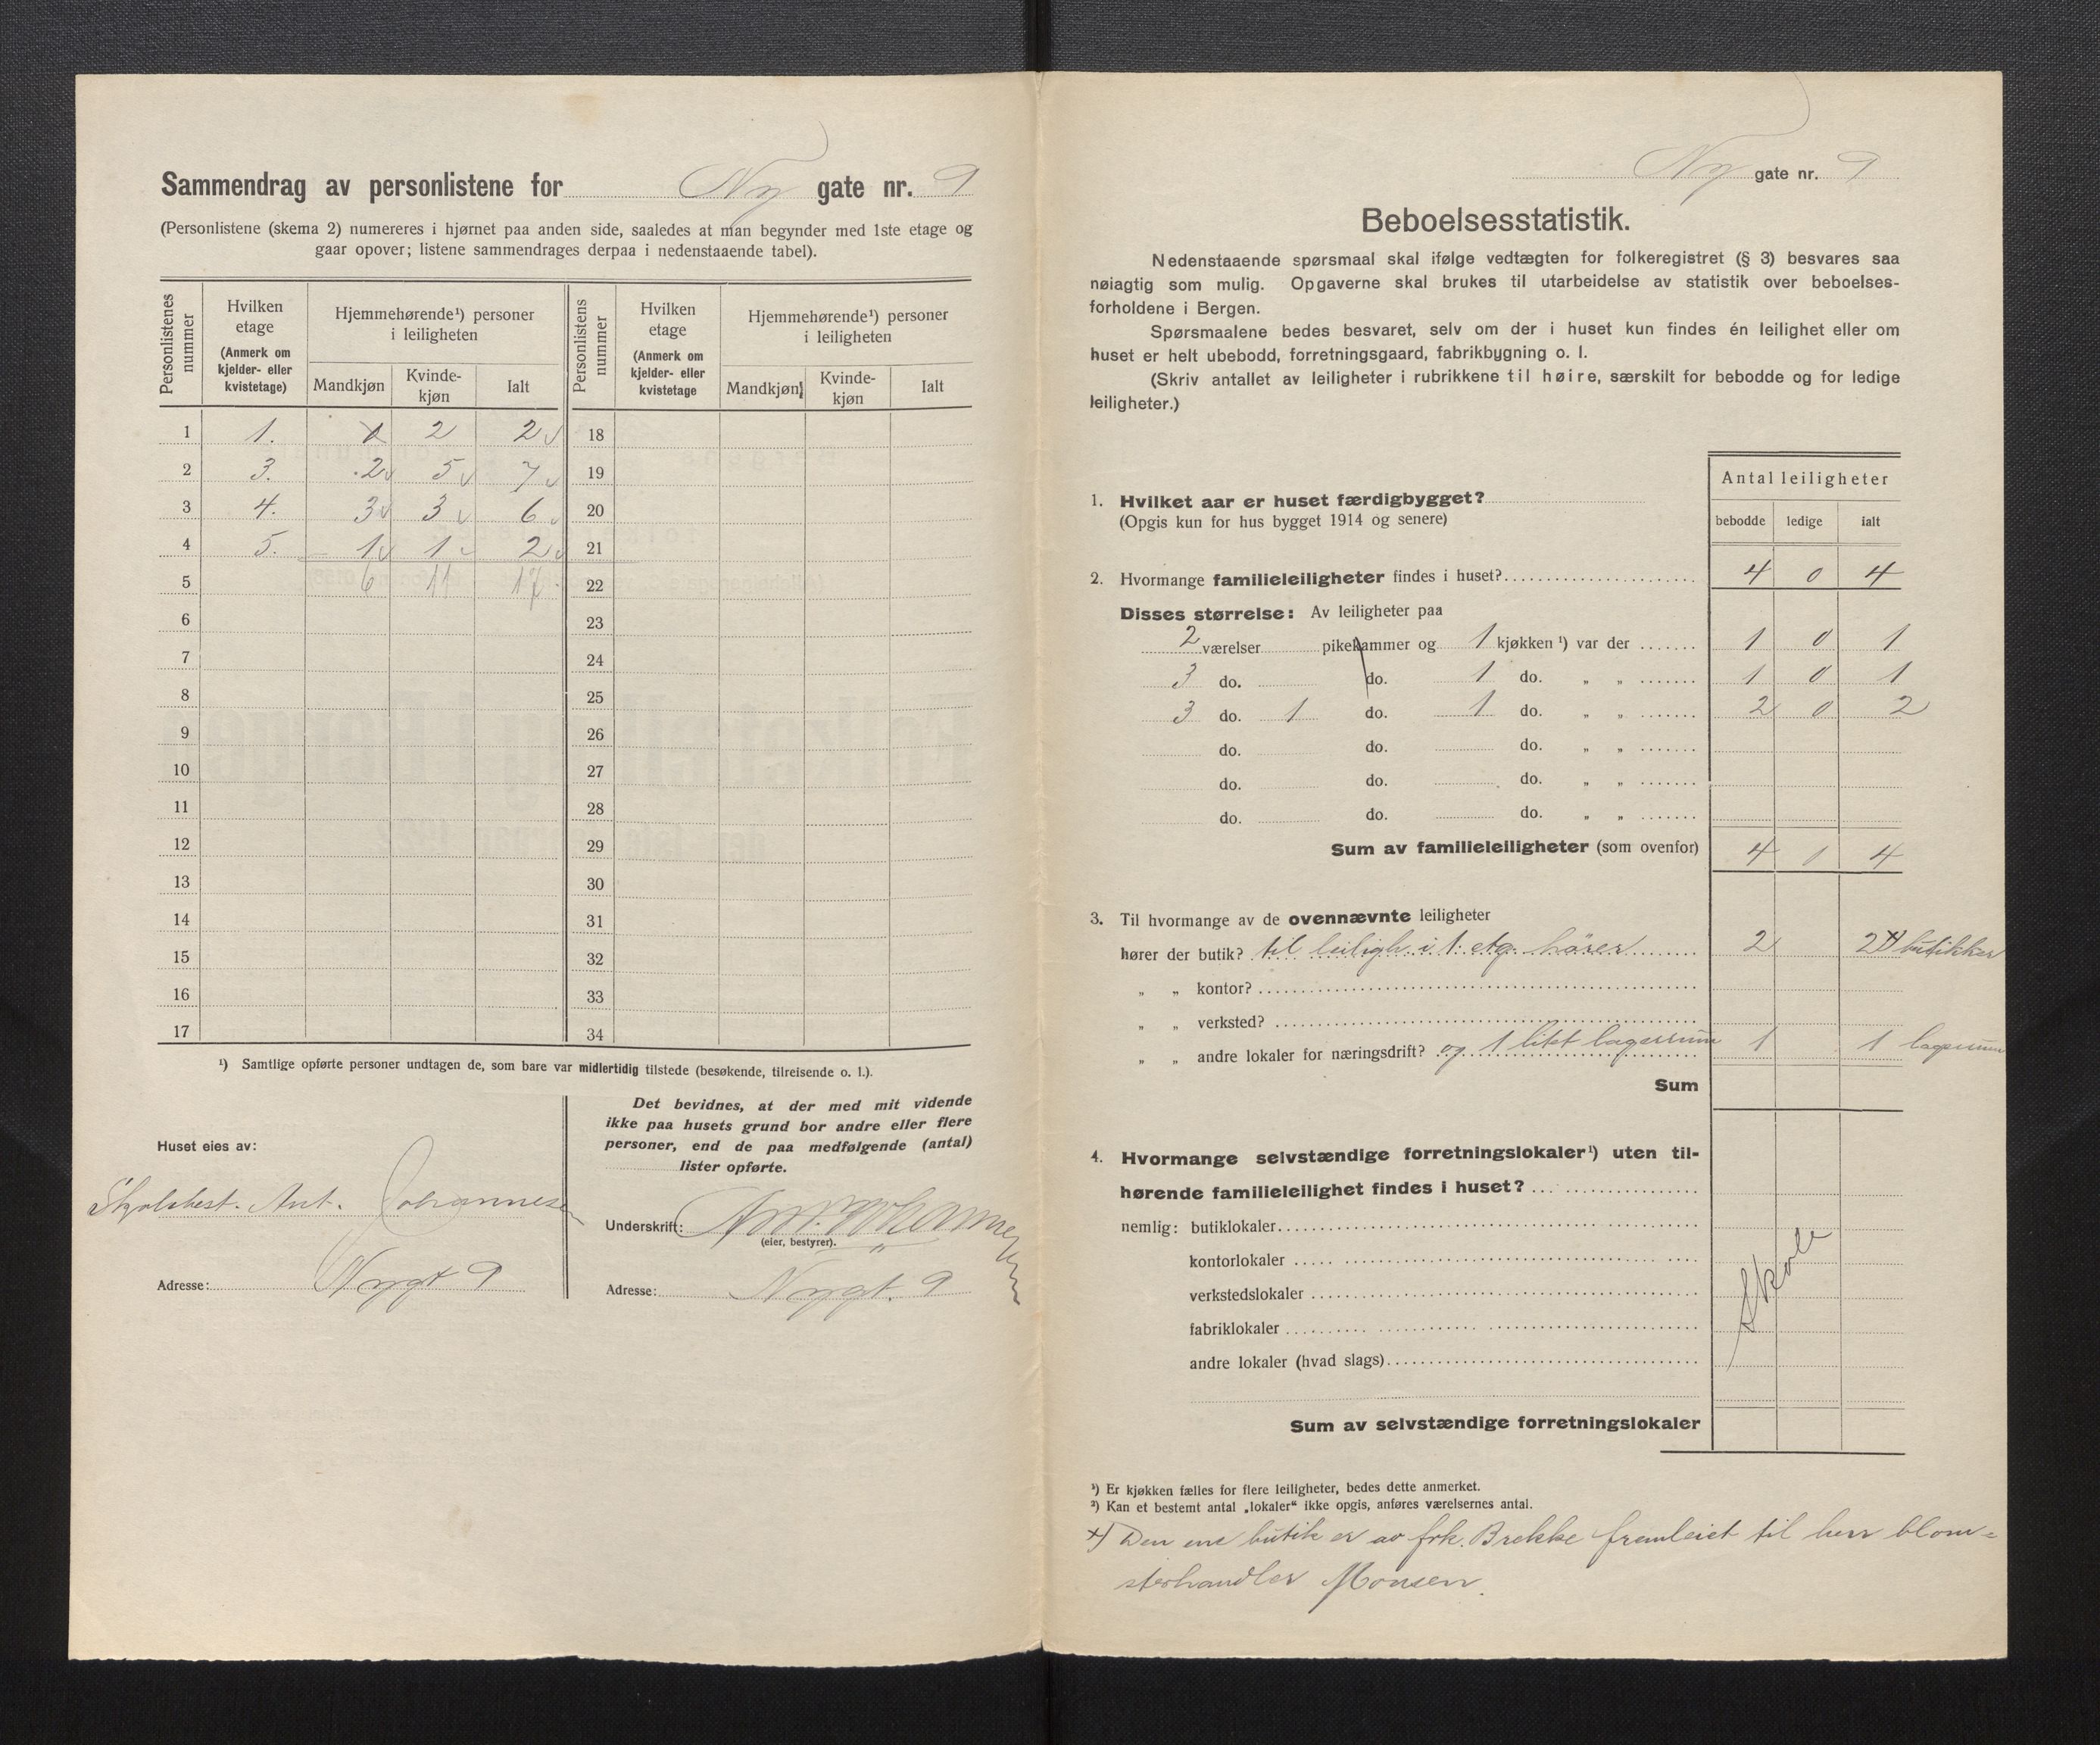 Sammendrag av personlistene for Ny gate nr. 9
(Personlistene (skema 2) numereres i hjørnet paa anden side, saaledes at man begynder med 1ste etage og
gaar opover; listene sammendrages derpaa i nedenstaaende tabel).
Personlistenes nummer | Hvilken etage (Anmerk om kjelder- eller kvistetage) | Hjemmehørende¹) personer i leiligheten | Personlistens nummer | Hvilken etage (Anmerk om kjelder- eller kvistetage | Hjemmehørende¹) personer i leiligheten
Mandkjøn | Kvinde-kjøn | Ialt | Mandkjøn | Kvinde-kjøn | Ialt
1 1. 0 2 2 18
2 3. 2 5 7 19
3 4. 3 3 6 20
4 5. 1 1 2 21
5 6 11 17 22
6 23
7 24
8 25
9 26
10 27
11 28
12 29
13 30
14 31
15 32
16 33
17 34
¹) Samtlige opførte personer undtagen de, som bare var midlertidig tilstede (besøkende, tilreisende o. l.).
Huset eies av:
Skolebest. Ant. Johannesen
Adresse: Nygt 9
Det bevidnes, at der med mit vidende
ikke paa husets grund bor andre eller flere
personer, end de paa medfølgende (antal)
lister opførte.
Underskrift: Ant. Johannessen
(eier, bestyrer).
Adresse: Nygt. 9
Ny gate nr. 9
Beboelsesstatistik.
Nedenstaaende spørsmaal skal ifølge vedtægten for folkeregistret (§ 3) besvares saa
nøiagtig som mulig. Opgaverne skal brukes til utarbeidelse av statistik over beboelses-
forholdene i Bergen.
Spørsmaalene bedes besvaret, selv om der i huset kun findes én leilighet eller om
huset er helt ubebodd, forretningsgaard, fabrikbygning o. l.
(Skriv antallet av leiligheter i rubrikkene til høire, særskilt for bebodde og for ledige
leiligheter.)
Antal leiligheter
bebodde ledige ialt
1. Hvilket aar er huset færdigbygget?
(Opgis kun for hus bygget 1914 og senere)
2. Hvormange familieleiligheter findes i huset? 4 0 4
Disses størrelse: Av leiligheter paa
2 værelser pikekammer og 1 kjøkken ¹) var der 1 0 1
3 do. do. 1 do. „ „ 1 0 1
3 do. 1 do. 1 do. „ „ 2 0 2
do. do. do. „ „
do. do. do. „ „
do. do. do. „ „
Sum av familieleiligheter (som ovenfor) 4 0 4
3. Til hvormange av de ovennævnte leiligheter
hører der butik? til leiligh. i 1. etg. hører 2 2 x) butikker
„ „ kontor?
„ „ verksted?
„ „ andre lokaler for næringsdrift? og 1 litet lagerrum 1 1 lagerrum
Sum
4. Hvormange selvstændige forretningslokaler¹) uten til-
hørende familieleilighet findes i huset?
nemlig: butiklokaler
kontorlokaler
verkstedslokaler
fabriklokaler
andre lokaler (hvad slags)
Skole
Sum av selvstændige forretningslokaler
¹) Er kjøkken fælles for flere leiligheter, bedes dette anmerket.
²) Kan et bestemt antal „lokaler“ ikke opgis, anføres værelsernes antal.
x) Den ene butik er av frk. Brekke fremleiet til herr blom=
sterhandler Monsen.